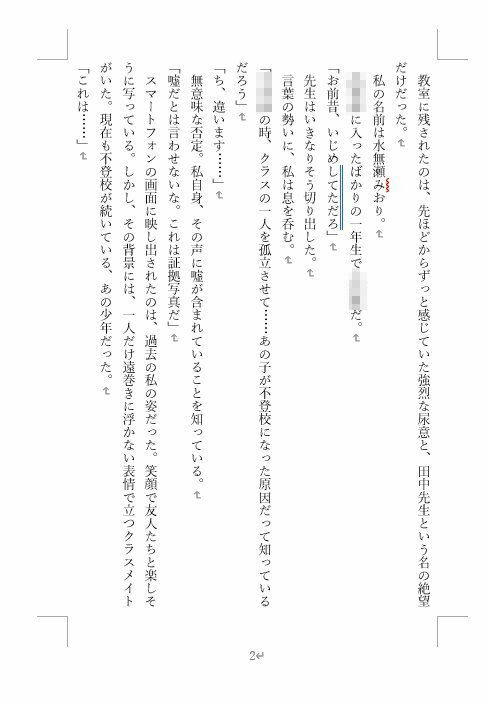 教室に残されたのは、先ほどからずっと感じていた強烈な尿意と、田中先生という名の絶望
だけだった。
私の名前は水無瀬みおり。
に入ったばかりの一年生で だ。
「お前昔、いじめしてただろ」
先生はいきなりそう切り出した。
言葉の勢いに、私は息を呑む。
「 の時、クラスの一人を孤立させて……あの子が不登校になった原因だって知っている
だろう」
「ち、違います……」
無意味な否定。私自身、その声に嘘が含まれていることを知っている。
「嘘だとは言わせないな。これは証拠写真だ」
スマートフォンの画面に映し出されたのは、過去の私の姿だった。笑顔で友人たちと楽しそ
うに写っている。しかし、その背景には、一人だけ遠巻きに浮かない表情で立つクラスメイト
がいた。現在も不登校が続いている、あの少年だった。
「これは……」
2